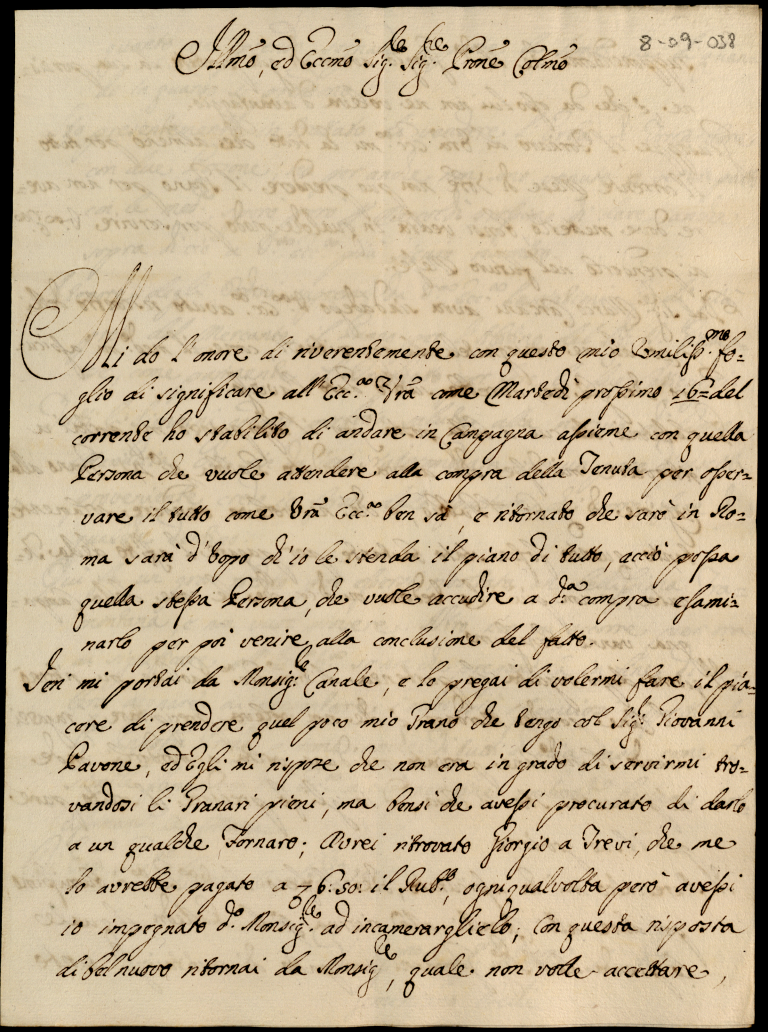 8-09-038
Illmo, ed Eccmo Sigre. Sigre. Prone Colmo
Mi do l'onore di riverentemente con questo mio Umiliss.mo fo=
glio di significare all'Ecc.a Vrã come Martedì prossimo 16= del
corrente ho stabilito di andare in Campagna assieme con quella
Persona che vuole attendere alla compra della Tenuta per osser=
vare il tutto come Vrã Ecc.a ben sà, e ritornato che sarò in Ro=
ma sarà d'Uopo ch'io le stenda il piano di tutto, acciò possa
quella stessa Persona, che vuole accudire a d.a compra esami=
narlo per poi venire alla conclusione del fatto.
Jeri mi portai da Monsig.re Canale, e lo pregai di volermi fare il pia=
cere di prendere quel poco mio Grano che tengo col Sig.r Giovanni
Pavone, ed Egli mi rispose che non era in grado di servirmi tro=
vandosi li Granari pieni, ma bensì che avessi procurato di darlo
a un qualche Fornaro; Avrei ritrovato Giorgio a Trevi, che me
lo avrebbe pagato a 6:50: il Rub.o, ogniqualvolta però avessi
io impegnato d.o Monsig.re ad incamerarglielo; Con questa risposta
di bel nuovo ritornai da Monsig.re, quale non volle accettare,